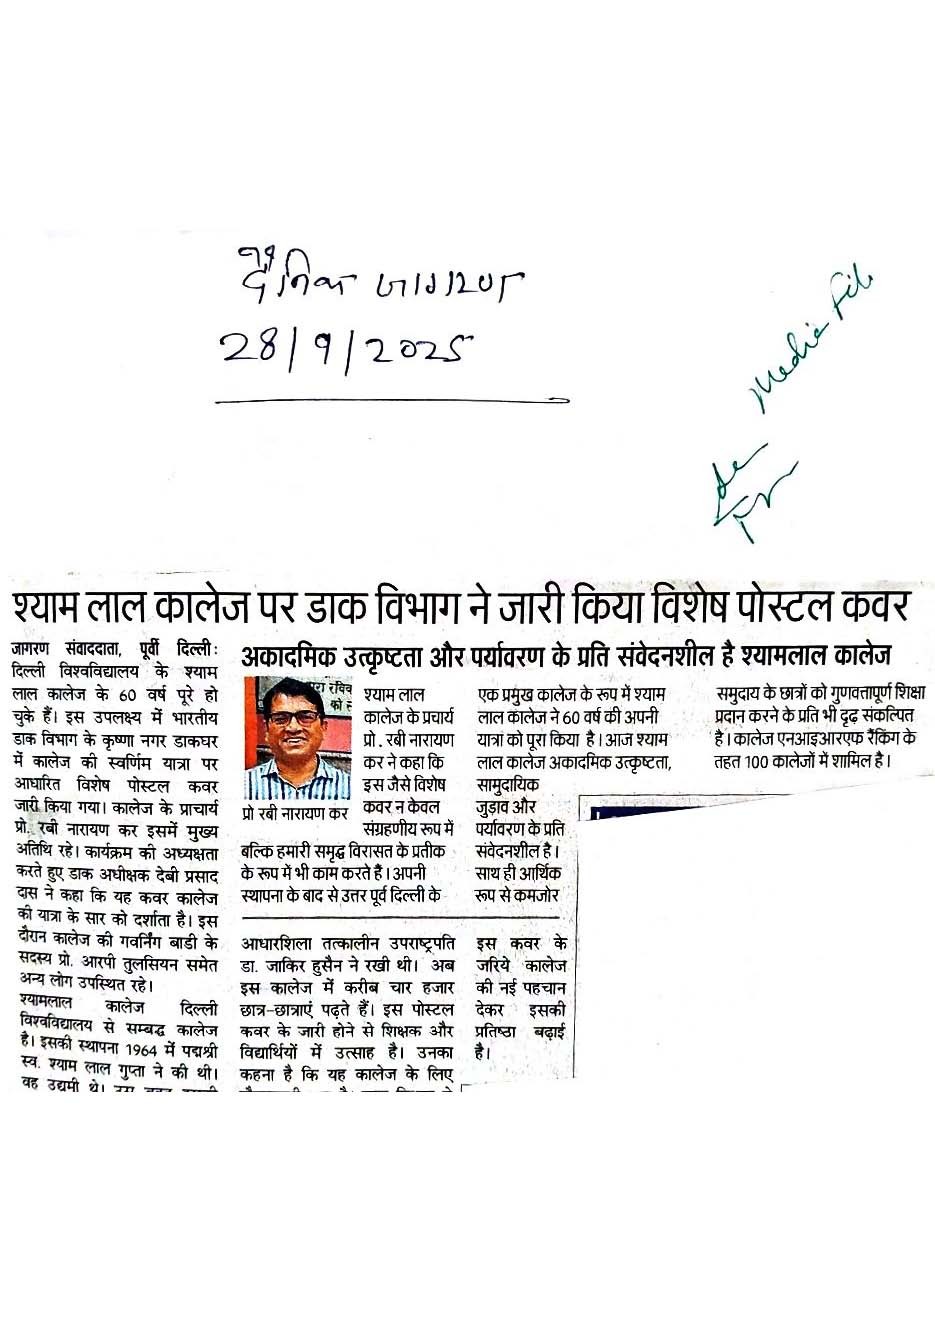 दैनिक जागरण
28/9/2025
Media File
श्याम लाल कालेज पर डाक विभाग ने जारी किया विशेष पोस्टल कवर
जागरण संवाददाता, पूर्वी दिल्ली:
दिल्ली विश्वविद्यालय के श्याम
लाल कालेज के 60 वर्ष पूरे हो
चुके हैं। इस उपलक्ष्य में भारतीय
डाक विभाग के कृष्णा नगर डाकघर
में कालेज की स्वर्णिम यात्रा पर
आधारित विशेष पोस्टल कवर
जारी किया गया। कालेज के प्राचार्य
प्रो. रबी नारायण कर इसमें मुख्य
अतिथि रहे। कार्यक्रम की अध्यक्षता
करते हुए डाक अधीक्षक देबी प्रसाद
दास ने कहा कि यह कवर कालेज
की यात्रा के सार को दर्शाता है। इस
दौरान कालेज की गवर्निंग बाडी के
सदस्य प्रो. आरपी तुलसियन समेत
अन्य लोग उपस्थित रहे।
श्यामलाल कालेज दिल्ली
विश्वविद्यालय से सम्बद्ध कालेज
है। इसकी स्थापना 1964 में पद्मश्री
स्व. श्याम लाल गुप्ता ने की थी।
वह उद्यमी थे।
अकादमिक उत्कृष्टता और पर्यावरण के प्रति संवेदनशील है श्यामलाल कालेज
प्रो रबी नारायण कर
श्याम लाल
कालेज के प्रचार्य
प्रो . रबी नारायण
कर ने कहा कि
इस जैसे विशेष
कवर न केवल
संग्रहणीय रूप में
बल्कि हमारी समृद्ध विरासत के प्रतीक
के रूप में भी काम करते हैं। अपनी
स्थापना के बाद से उत्तर पूर्व दिल्ली के
एक प्रमुख कालेज के रूप में श्याम
लाल कालेज ने 60 वर्ष की अपनी
यात्रा को पूरा किया है। आज श्याम
लाल कालेज अकादमिक उत्कृष्टता,
सामुदायिक
जुड़ाव और
पर्यावरण के प्रति
संवेदनशील है।
साथ ही आर्थिक
रूप से कमजोर
समुदाय के छात्रों को गुणवत्तापूर्ण शिक्षा
प्रदान करने के प्रति भी दृढ़ संकल्पित
है। कालेज एनआइआरएफ रैंकिंग के
तहत 100 कालेजों में शामिल है।
आधारशिला तत्कालीन उपराष्ट्रपति
डा. जाकिर हुसैन ने रखी थी। अब
इस कालेज में करीब चार हजार
छात्र-छात्राएं पढ़ते हैं। इस पोस्टल
कवर के जारी होने से शिक्षक और
विद्यार्थियों में उत्साह है। उनका
कहना है कि यह कालेज के लिए
इस कवर के
जरिये कालेज
की नई पहचान
देकर इसकी
प्रतिष्ठा बढ़ाई
है।